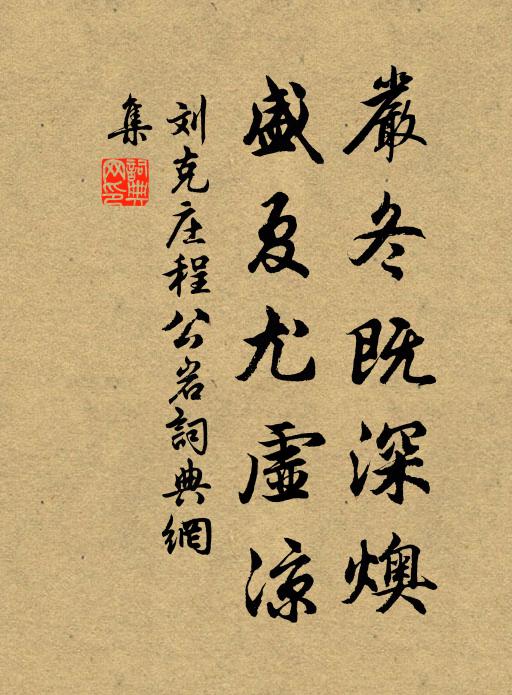 嚴冬既深燠
盛夏尤虛涼
刘克庄程公岩詞典網
集
詞典網印